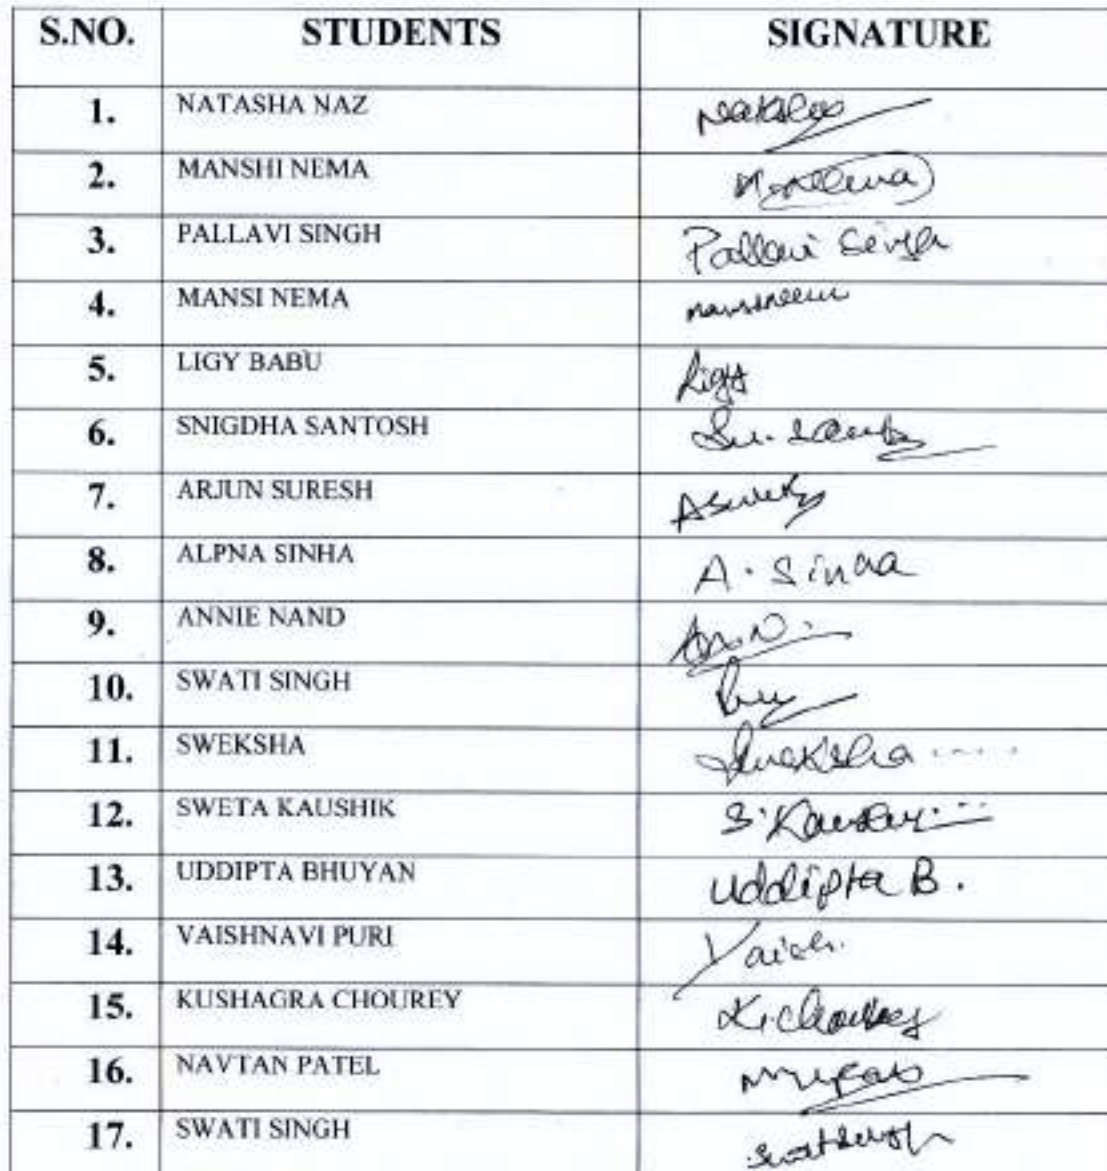 S.NO. STUDENTS SIGNATURE
1. NATASHA NAZ
2. MANSHI NEMA
3. PALLAVI SINGH Pallavi Singh
4. MANSI NEMA
5. LIGY BABU Ligy
6. SNIGDHA SANTOSH
7. ARJUN SURESH
8. ALPNA SINHA A. Sinha
9. ANNIE NAND An.N.
10. SWATI SINGH
11. SWEKSHA Sweksha
12. SWETA KAUSHIK
13. UDDIPTA BHUYAN Uddipta B.
14. VAISHNAVI PURI Vaish.
15. KUSHAGRA CHOUREY K.Chourey
16. NAVTAN PATEL
17. SWATI SINGH